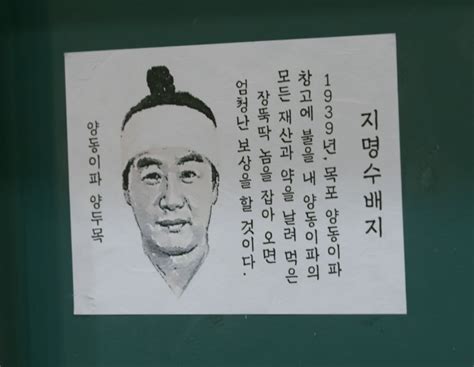 지명수배지
1939년. 목포 양동이파
창고에 불을 내 양동이파의
모든 재산과 약을 날려 먹은
장뚝딱 놈을 잡아 오면
엄청난 보상을 할 것이다.
양동이파 양두목